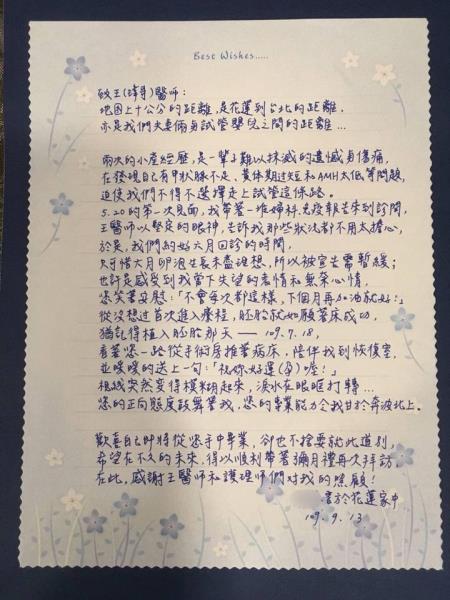 Best Wishes.....
致王(瑋尋)醫師：
地圖上十公分的距離，是花蓮到台北的距離，
亦是我們夫妻倆與試管嬰兒之間的距離…
兩次的小產經歷，是一輩子難以抹滅的遺憾與傷痛，
在發現自己有甲狀腺不足、黃體期過短和AMH太低等問題，
迫使我們不得不選擇走上試管這條路。
5.20的第一次見面，我帶著一堆婦科、免疫報告來到診間，
王醫師以堅定的眼神，告訴我那些狀況都不用太擔心，
於是，我們約好六月回診的時間，
只可惜六月卵泡生長未盡理想，所以被宣告需暫緩；
也許是感受到我當下失望的表情和無奈心情，
您笑著安慰：「不會每次都這樣，下個月再加油就好！」
從沒想過首次進入療程，胚胎就如願著床成功，
猶記得植入胚胎那天——109.7.18，
看著您一路從手術房推著病床，陪伴我到恢復室，
並暖暖的送上一句：「祝妳好運(孕)喔！」
視線突然變得模糊起來，淚水在眼眶打轉…
您的正向態度鼓舞著我，您的專業能力令我甘於奔波北上。
歡喜自己即將從您手中畢業，卻也不捨要就此道別，
希望在不久的未來，得以順利帶著彌月禮再次拜訪，
在此，感謝王醫師和護理師們對我的照顧！
書於花蓮家中
109.9.13